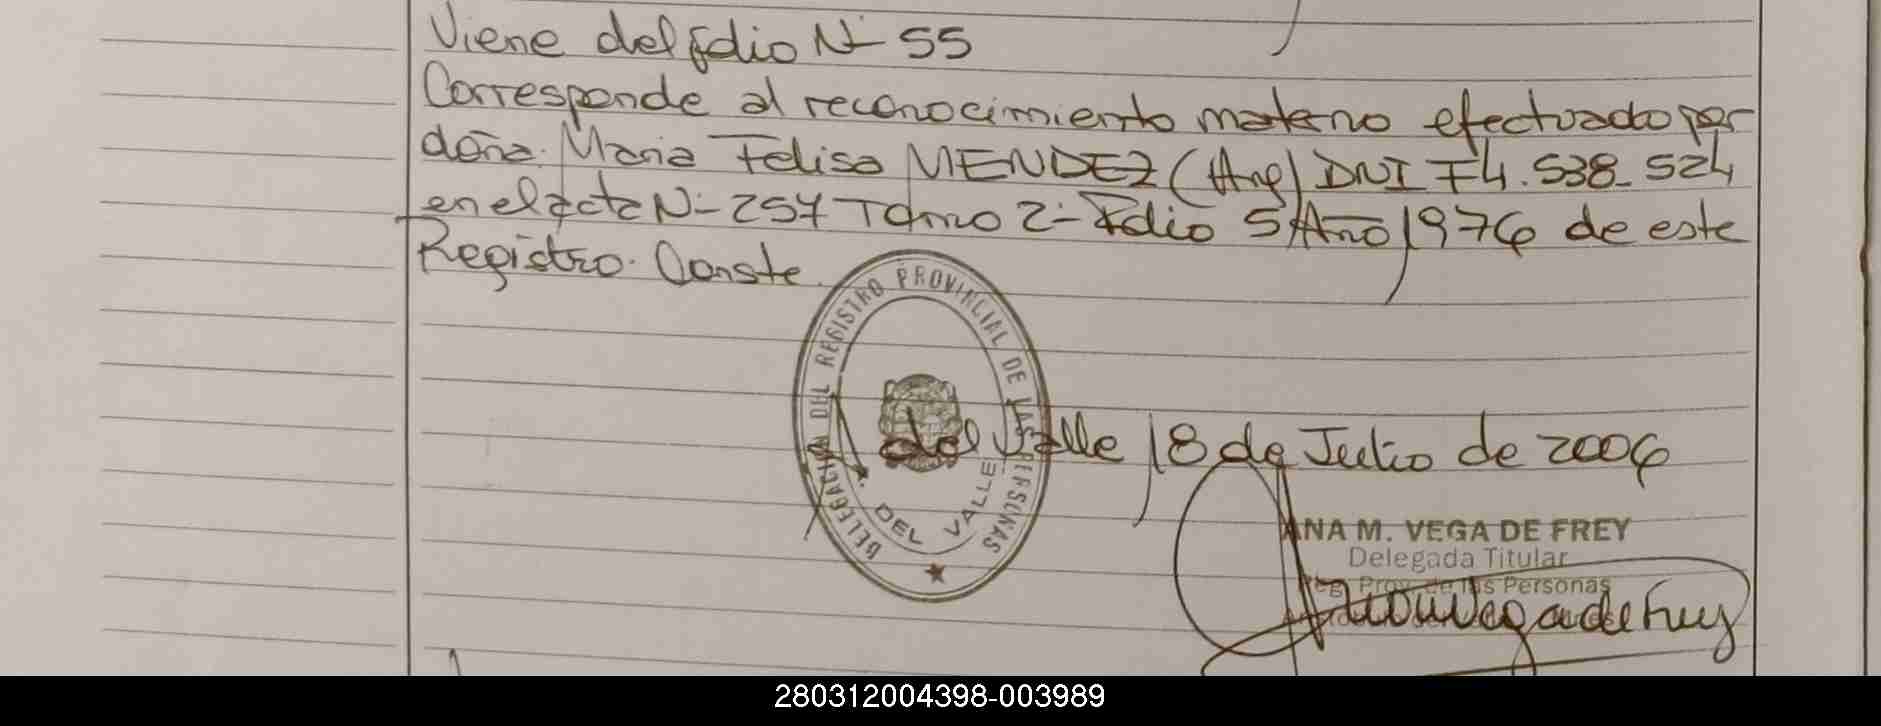 Viene del folio Nº 55
Corresponde al reconocimiento materno efectuado por
doña Maria Felisa MENDEZ (Arg) DNI F4.538.524
en el acta Nº 257 Tomo 2º Folio 5 Año 1976 de este
Registro. Conste.
DELEGACION DEL REGISTRO PROVINCIAL DE LAS PERSONAS
DEL VALLE
del Valle, 18 de Julio de 2006
ANA M. VEGA DE FREY
Delegada Titular
Reg. Prov. de las Personas
280312004398-003989